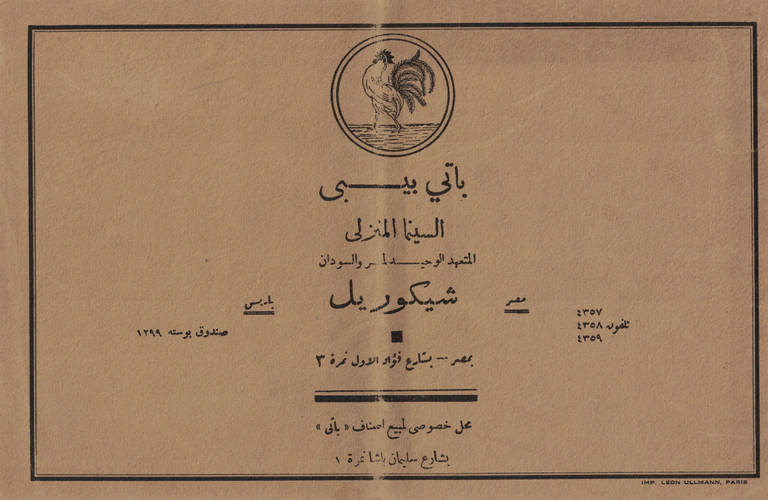 باتي بيبى
السينما المنزلى
المتعهد الوحيد لمصر والسودان
مصر
شيكوريل
باريس
٤٣٥٧
تلفون ٤٣٥٨
٤٣٥٩
صندوق بوسته ١٢٩٩
بمصر — بشارع فؤاد الاول نمرة ٣
محل خصوصى لمبيع اصناف « باتى »
بشارع سليمان باشا نمرة ١
IMP. LÉON ULLMANN, PARIS